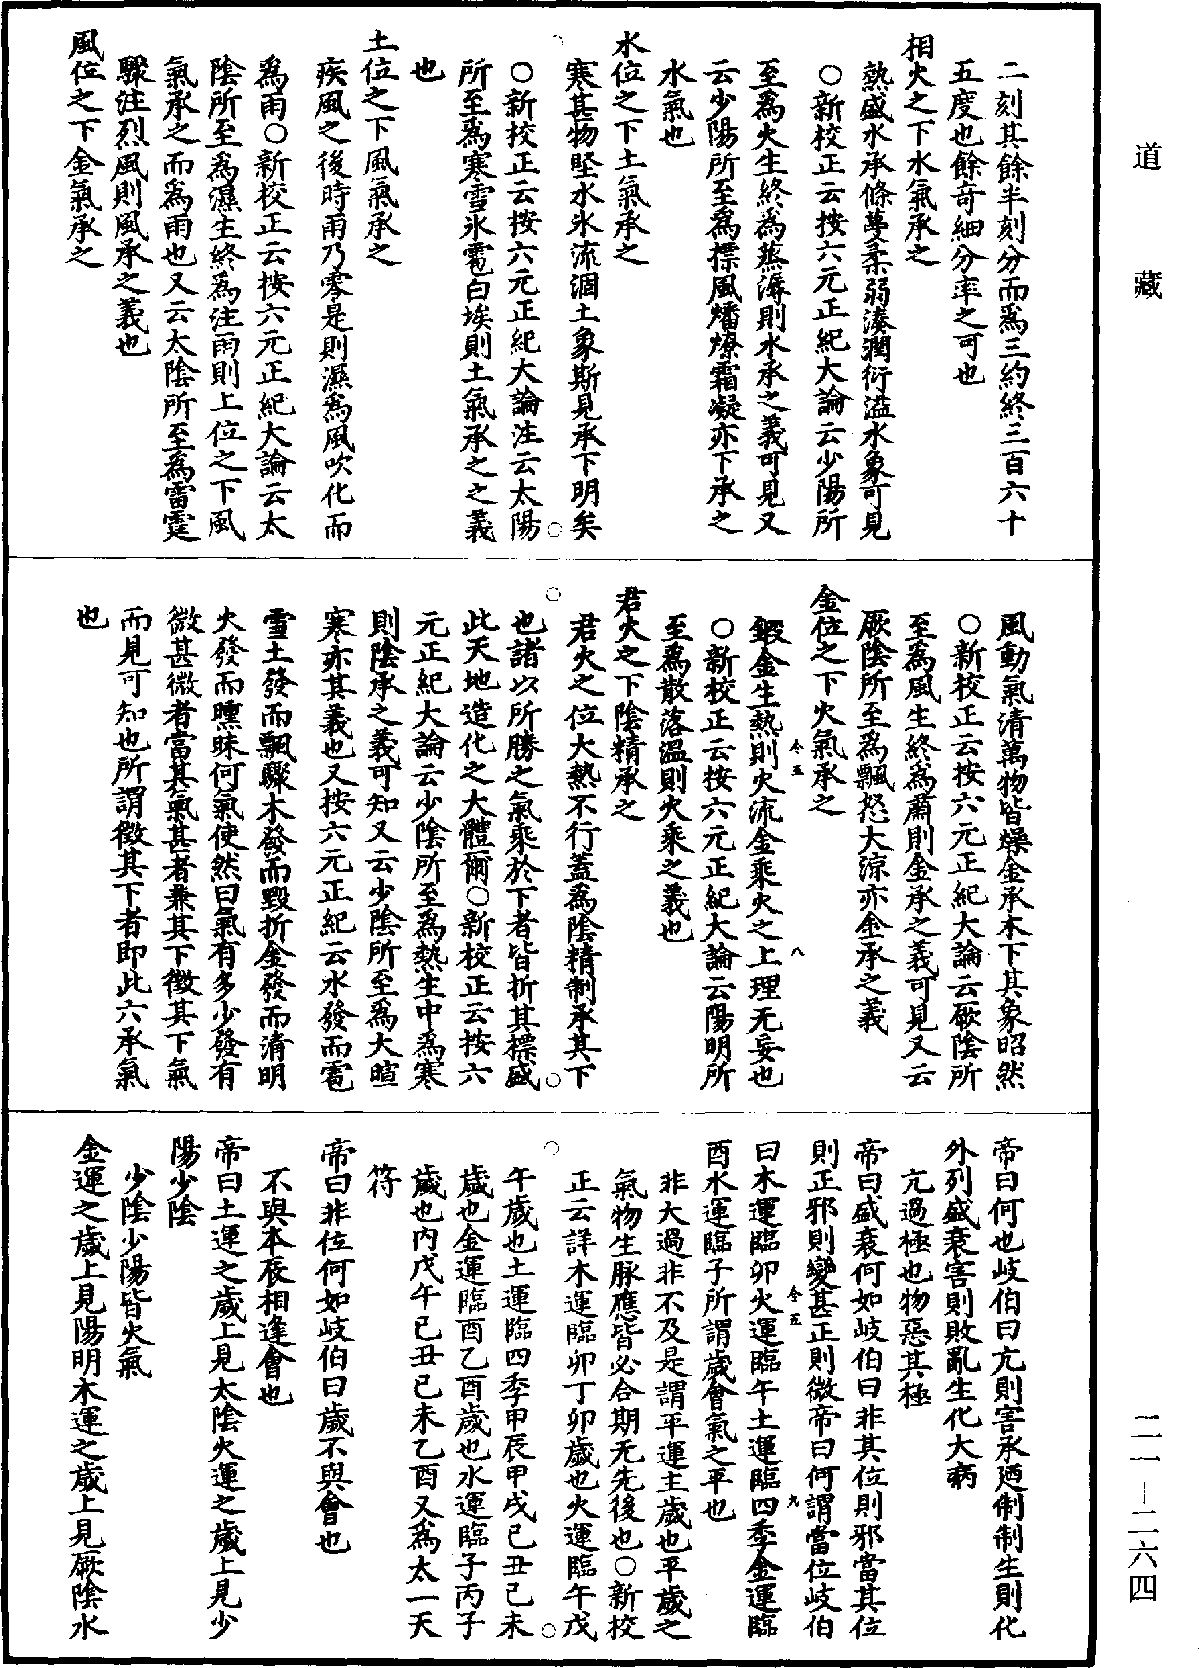 道藏
二一—二六四
二刻其餘半刻分而爲三約終三百六十
五度也餘竒細分率之可也
相火之下水氣承之
熱盛水承條蔓柔弱湊潤衍溢水象可見
○新校正云按六元正紀大論云少陽所
至爲火生終爲蒸溽則水承之義可見又
云少陽所至爲摽風燔燎霜凝亦下承之
水氣也
水位之下土氣承之
寒甚物堅水氷流涸土象斯見承下明矣
○新校正云按六元正紀大論注云太陽
所至爲寒雪氷雹白埃則土氣承之之義
也
土位之下風氣承之
疾風之後時雨乃零是則濕爲風吹化而
爲雨○新校正云按六元正紀大論云太
陰所至爲濕生終爲注雨則上位之下風
氣承之而爲雨也又云太陰所至爲雷霆
驟注烈風則風承之義也
風位之下金氣承之
風動氣清萬物皆燥金承木下其象昭然
○新校正云按六元正紀大論云厥陰所
至爲風生終爲肅則金承之義可見又云
厥陰所至爲飄怒大涼亦金承之義
金位之下火氣承之
鍜金生熱則火流金乘火之上理无妄也
○新校正云按六元正紀大論云陽明所
至爲散落温則火乘之義也
君火之下陰精承之
君火之位大熱不行蓋爲陰精制承其下
也諸以所勝之氣乘於下者皆折其摽盛
此天地造化之大體爾○新校正云按六
元正紀大論云少陰所至爲熱生中爲寒
則陰承之義可知又云少陰所至爲大暄
寒亦其義也又按六元正紀云水發而雹
雪土發而飄驟木發而毀折金發而清明
火發而曛昧何氣使然曰氣有多少發有
微甚微者當其氣甚者兼其下徵其下氣
而見可知也所謂徵其下者即此六承氣
也
帝曰何也岐伯曰亢則害承廼制制生則化
外列盛衰害則敗亂生化大病
亢過極也物惡其極
帝曰盛衰何如岐伯曰非其位則邪當其位
則正邪則變甚正則微帝曰何謂當位岐伯
曰木運臨卯火運臨午土運臨四季金運臨
酉水運臨子所謂歲會氣之平也
非大過非不及是謂平運主歲也平歲之
氣物生脉應皆必合期无先後也○新校
正云詳木運臨卯丁卯歲也火運臨午戊
午歲也土運臨四季甲辰甲戌己丑己未
歲也金運臨酉乙酉歲也水運臨子丙子
歲也内戊午己丑己未乙酉又爲太一天
符
帝曰非位何如岐伯曰歲不與會也
不與本辰相逢會也
帝曰土運之歲上見太陰火運之歲上見少
陽少陰
少陰少陽皆火氣
金運之歲上見陽明木運之歲上見厥陰水